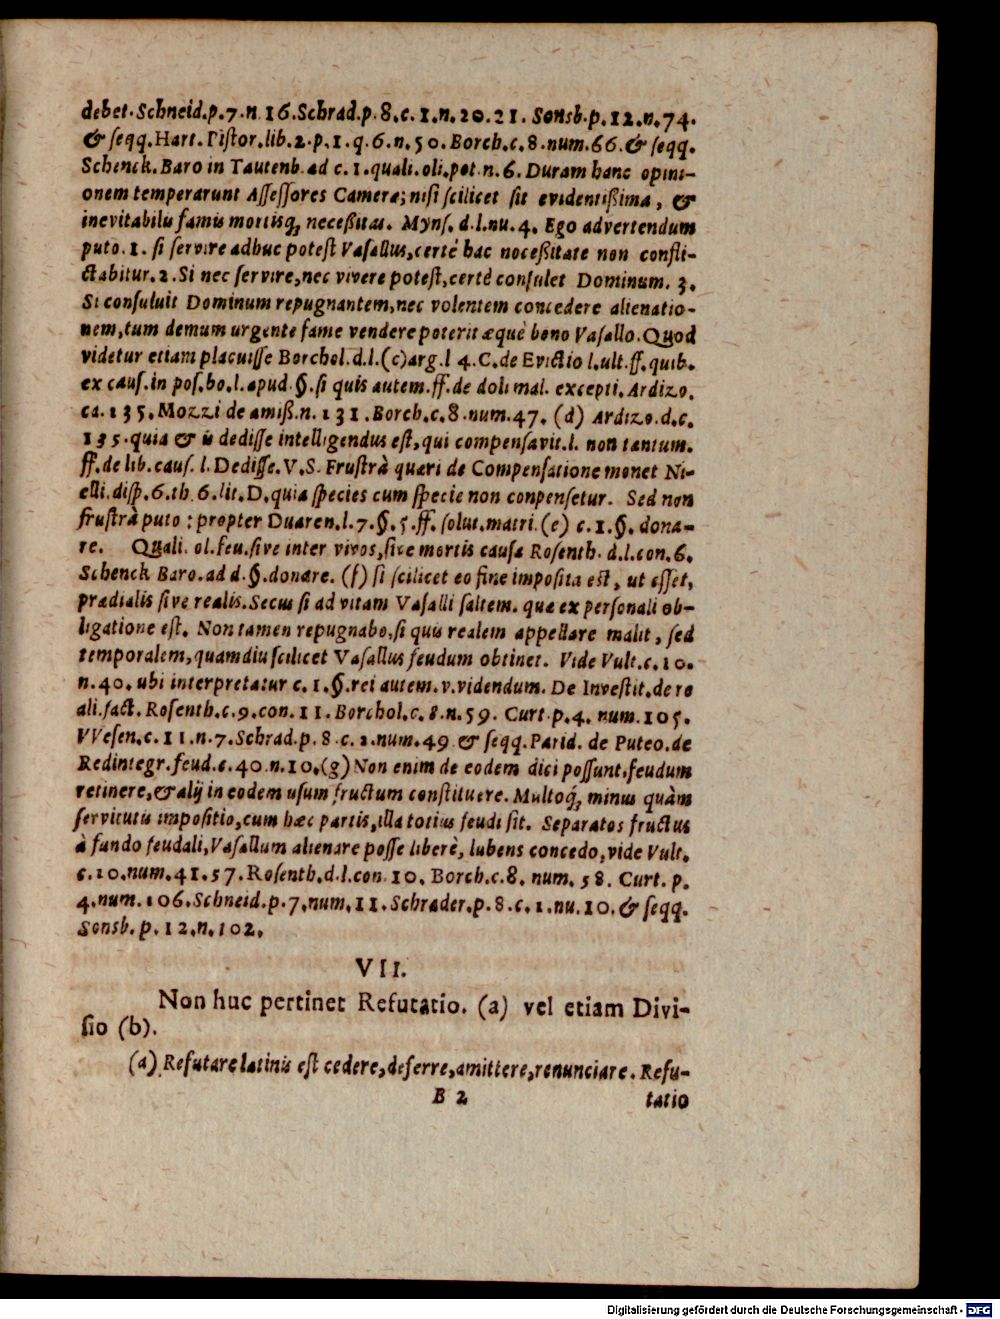 debet. Schneid.p.7.n.16.Schrad.p.8.c.1.n.20.21. Sonsb.p.12.n.74.
& ſeqq.Hart. Piſtor.lib.2.p.1.q.6.n.50. Borch.c.8.num.66.& ſeqq.
Schenck.Baro in Tautenb.ad c.1.quali.oli.pot.n.6. Duram hanc opini-
onem temperarunt Aſſeſſores Cameræ; niſi ſcilicet ſit evidentißima, &
inevitabilis famis mortisq́; neceßitas. Mynſ. d.l.nu.4. Ego advertendum
puto.1. ſi ſervire adhuc poteſt Vaſallus,certè hac neceßitate non confli-
ctabitur.2.Si nec ſervire,nec vivere poteſt,certè conſulet Dominum. 3.
Si conſuluit Dominum repugnantem,nec volentem concedere alienatio-
nem,tum demum urgente fame vendere poterit æquè bono Vaſallo.Quod
videtur etiam placuiſſe Borchol.d.l.(c)arg.l 4.C.de Evictio l.ult.ff.quib.
ex cauſ.in poſ.bo.l.apud.§.ſi quis autem.ff.de doli mal. excepti.Ardizo.
ca.135.Mozzi de amiß.n.131.Borch.c.8.num.47. (d) Ardizo.d.c.
135.quia & is dediſſe intelligendus eſt,qui compenſavit.l. non tantum.
ff.de lib.cauſ. l.Dediſſe.V.S. Fruſtrà quæri de Compenſatione monet Ni-
elli.diſp.6.th.6.lit.D.quia ſpecies cum ſpecie non conpenſetur. Sed non
fruſtrà puto : propter Duaren.l.7.§.5.ff.ſolut.matri.(e) c.1.§. dona-
re. Quali. ol.feu.ſive inter vivos,ſive mortis cauſa Roſenth. d.l.con.6.
Schenck Baro.ad d.§.donare. (f) ſi ſcilicet eo fine impoſita eſt, ut eſſet,
prædialis ſive realis.Secus ſi ad vitam Vaſalli ſaltem. quæ ex perſonali ob-
ligatione eſt. Non tamen repugnabo,ſi quis realem appellare malit, ſed
temporalem,quamdiu ſcilicet Vaſallus feudum obtinet. Vide Vult.c.10.
n.40.ubi interpretatur c.1.§.rei autem.v.videndum. De Inveſtit.de re
ali.fact. Roſenth.c.9.con.11.Borchol.c.8.n.59. Curt.p.4. num.105.
VVeſen.c.11.n.7.Schrad.p.8.c.2.num.49 & ſeqq.Parid. de Puteo.de
Redintegr.feud.c.40.n.10.(g)Non enim de eodem dici poſſunt.feudum
retinere,& alij in eodem uſum fructum conſtituere. Multoq́; minus quàm
ſervitutis impoſitio,cum hæc partis,illa totius feudi ſit. Separatos fructus
à fundo feudali,Vaſallum alienare poſſe liberè, lubens concedo,vide Vult.
c.10.num.41.57.Roſenth.d.l.con.10. Borch.c.8. num.58. Curt. p.
4.num.106.Schneid.p.7.num.11.Schrader.p.8.c.1.nu.10.& ſeqq.
Sonsb.p.12.n.102.
VII.
Non huc pertinet Refutatio. (a) vel etiam Divi-
ſio (b).
(a) Refutare latinis eſt cedere,deferre,amittere,renunciare. Refu-
B 2 tatio
Digitalisierung gefördert durch die Deutsche Forschungsgemeinschaft - DFG